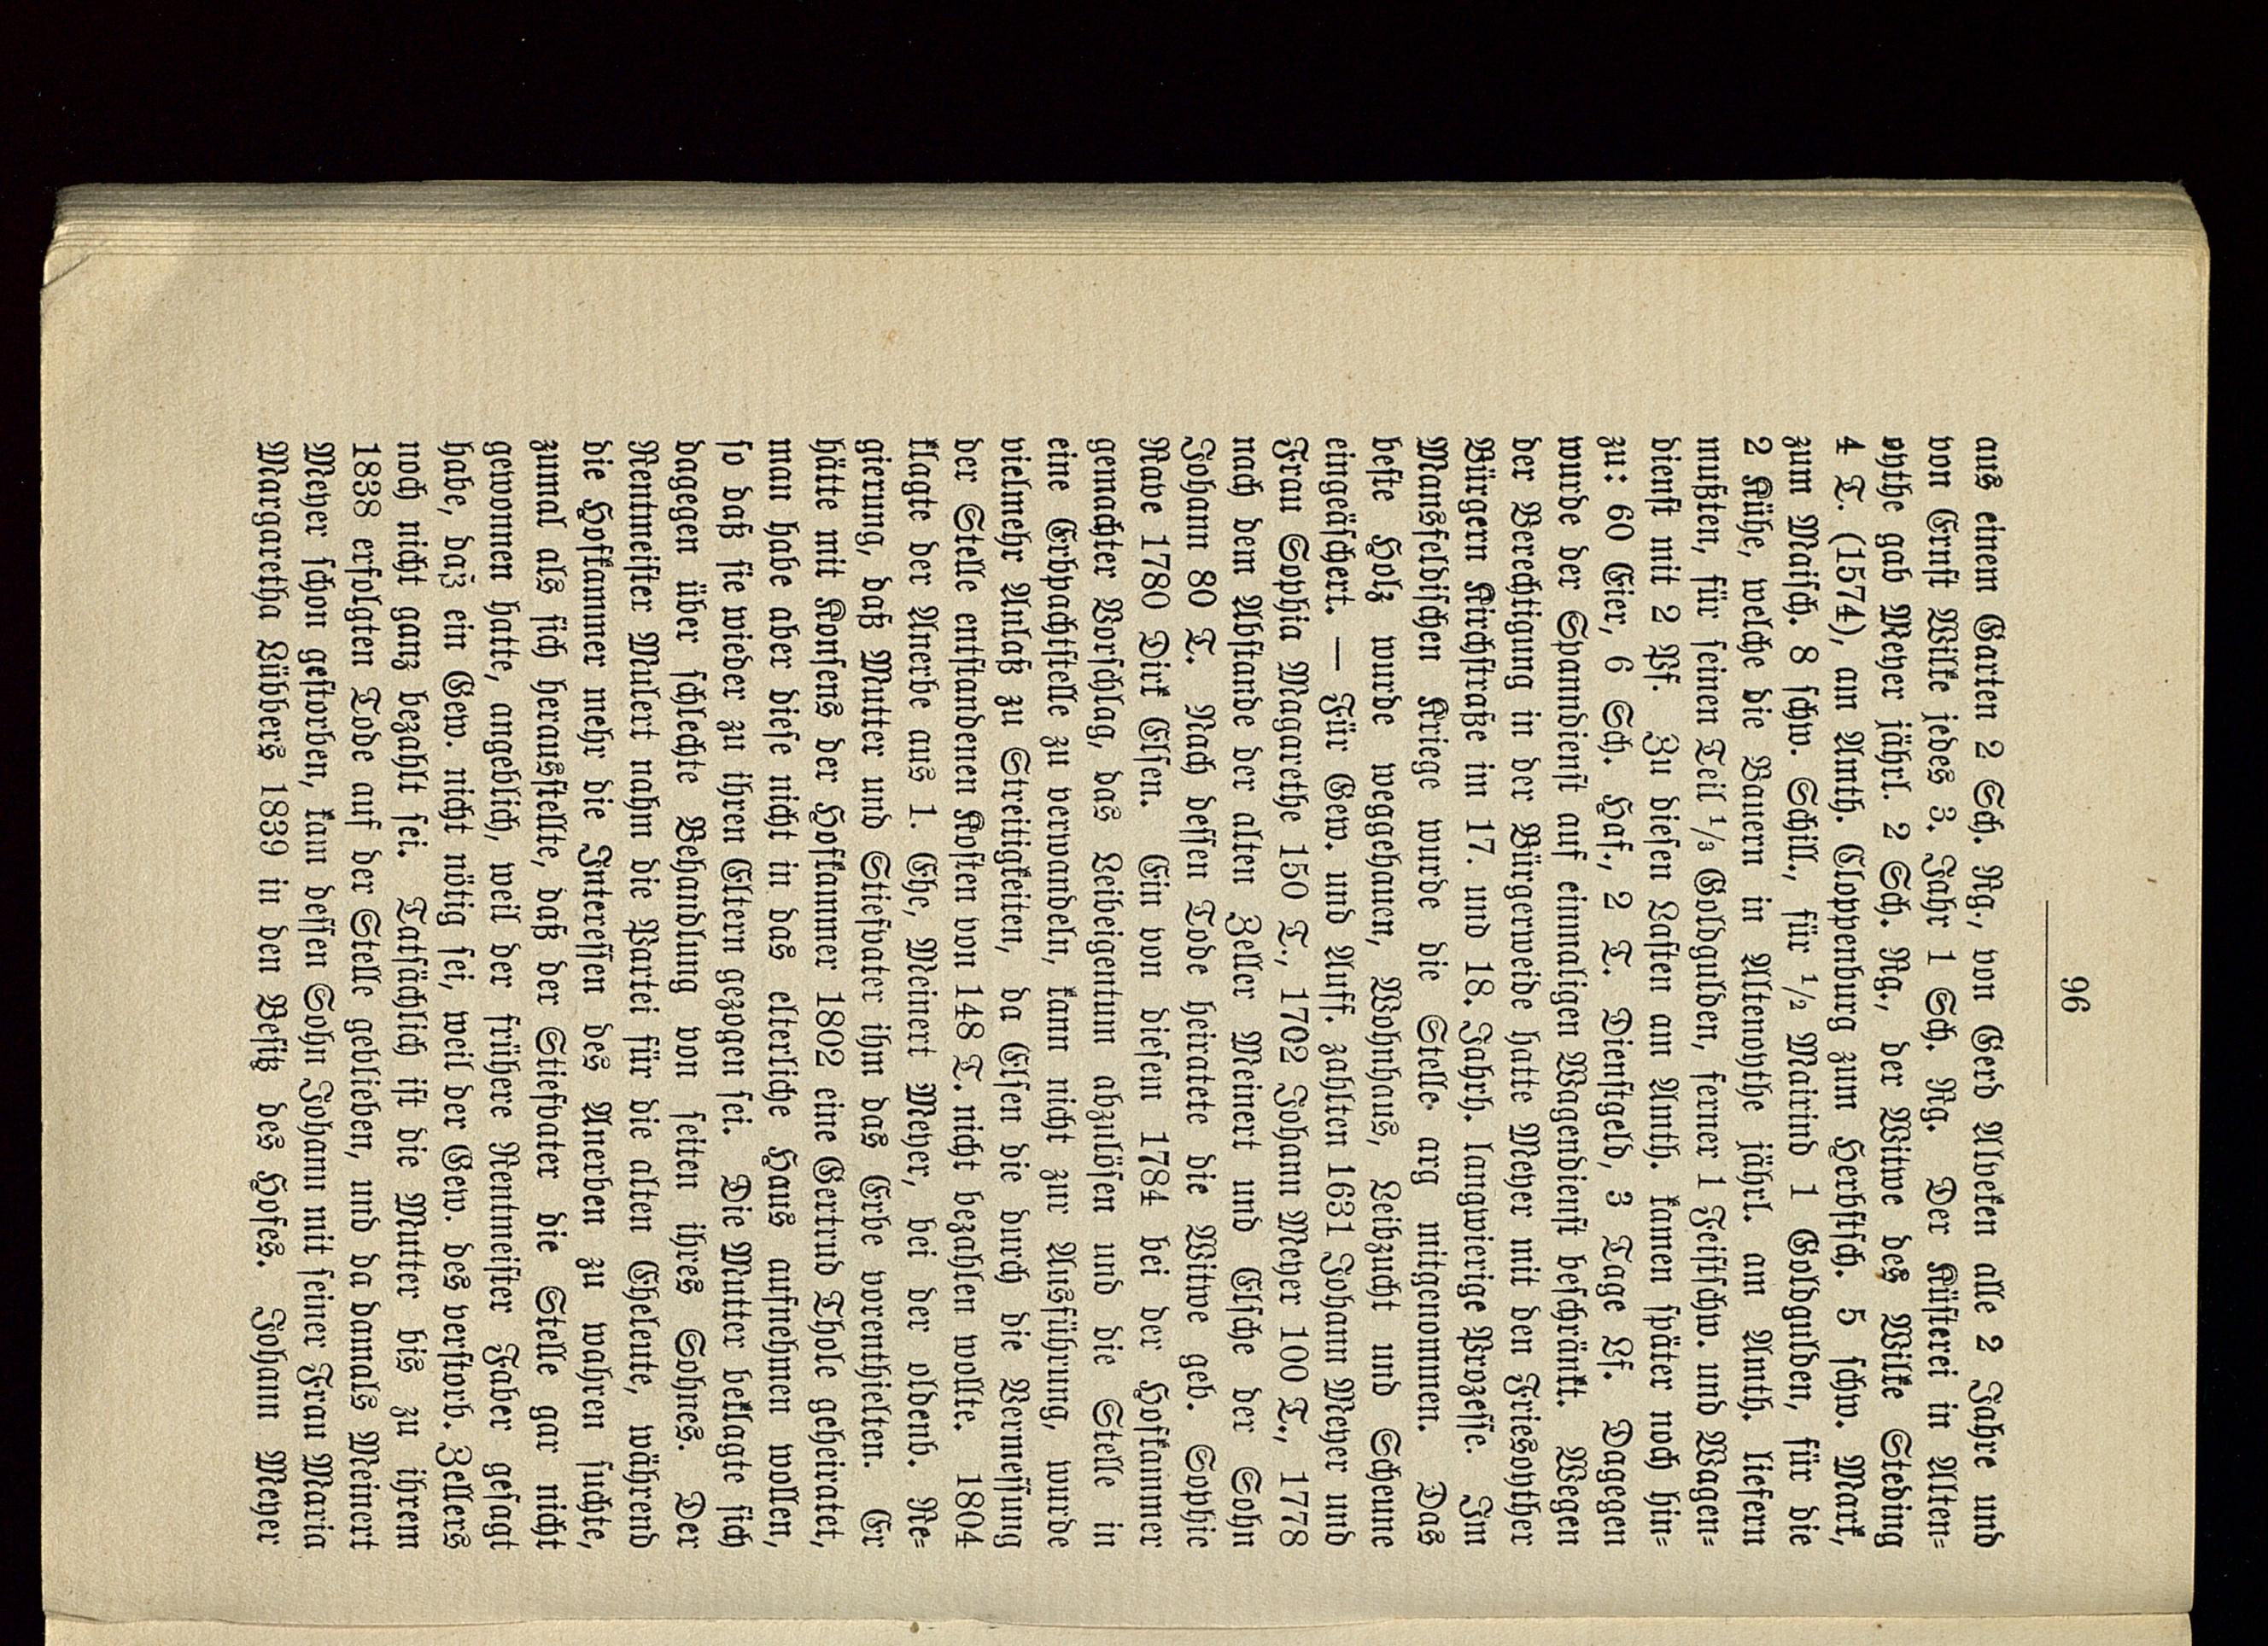 96
aus einem Garten 2 Sch. Rg., von Gerd Alveken alle 2 Jahre und
von Ernst Wilke jedes 3. Jahr 1 Sch. Rg. Der Küsterei in Alten-
oythe gab Meyer jährl. 2 Sch. Rg., der Witwe des Wilke Steding
4 T. (1574), am Amth. Cloppenburg zum Herbstsch. 5 schw. Mark,
zum Maisch. 8 schw. Schill., für 1/2 Mairind 1 Goldgulden, für die
2 Kühe, welche die Bauern in Altenoythe jährl. am Amth. liefern
mußten, für seinen Teil 1/3 Goldgulden, ferner 1 Feistschw. und Wagen-
dienst mit 2 Pf. Zu diesen Lasten am Amth. kamen später noch hin-
zu: 60 Eier, 6 Sch. Haf., 2 T. Dienstgeld, 3 Tage Lf. Dagegen
wurde der Spanndienst auf einmaligen Wagendienst beschränkt. Wegen
der Berechtigung in der Bürgerweide hatte Meyer mit den Friesoyther
Bürgern Kirchstraße im 17. und 18. Jahrh. langwierige Prozesse. Im
Mansfeldischen Kriege wurde die Stelle arg mitgenommen. Das
beste Holz wurde weggehauen, Wohnhaus, Leibzucht und Scheune
eingeäschert. — Für Gew. und Auff. zahlten 1631 Johann Meyer und
Frau Sophia Magarethe 150 T., 1702 Johann Meyer 100 T., 1778
nach dem Abstande der alten Zeller Meinert und Elsche der Sohn
Johann 80 T. Nach dessen Tode heiratete die Witwe geb. Sophie
Rave 1780 Dirk Elsen. Ein von diesem 1784 bei der Hofkammer
gemachter Vorschlag, das Leibeigentum abzulösen und die Stelle in
eine Erbpachtstelle zu verwandeln, kann nicht zur Ausführung, wurde
vielmehr Anlaß zu Streitigkeiten, da Elsen die durch die Vermessung
der Stelle entstandenen Kosten von 148 T. nicht bezahlen wollte. 1804
klagte der Anerbe aus 1. Ehe, Meinert Meyer, bei der oldenb. Re-
gierung, daß Mutter und Stiefvater ihm das Erbe vorenthielten. Er
hätte mit Konsens der Hofkammer 1802 eine Gertrud Thole geheiratet,
man habe aber diese nicht in das elterliche Haus aufnehmen wollen,
so daß sie wieder zu ihren Eltern gezogen sei. Die Mutter beklagte sich
dagegen über schlechte Behandlung von seiten ihres Sohnes. Der
Rentmeister Mulert nahm die Partei für die alten Eheleute, während
die Hofkammer mehr die Interessen des Anerben zu wahren suchte,
zumal als sich herausstellte, daß der Stiefvater die Stelle gar nicht
gewonnen hatte, angeblich, weil der frühere Rentmeister Faber gesagt
habe, daß ein Gew. nicht nötig sei, weil der Gew. des verstorb. Zellers
noch nicht ganz bezahlt sei. Tatsächlich ist die Mutter bis zu ihrem
1838 erfolgten Tode auf der Stelle geblieben, und da damals Meinert
Meyer schon gestorben, kam dessen Sohn Johann mit seiner Frau Maria
Margaretha Lübbers 1839 in den Besitz des Hofes. Johann Meyer